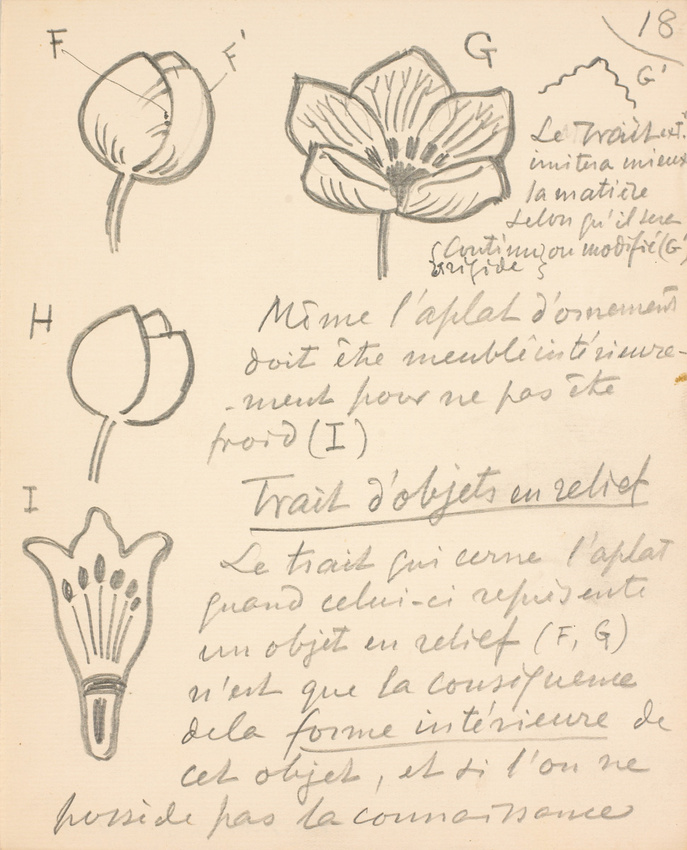 18
F
F'
G
G'
Le Trait ext.
imitera mieux
la matière
selon qu'il sera
{Continu} ou modifié (G')
rigide
H
Même l'aplat d'ornement
doit être meublé intérieure-
-ment pour ne pas être
froid (I)
I
Trait d'objets en relief
Le trait qui cerne l'aplat
quand celui-ci représente
un objet en relief (F, G)
n'est que la conséquence
de la forme intérieure de
cet objet, et si l'on ne
possède pas la connaissance